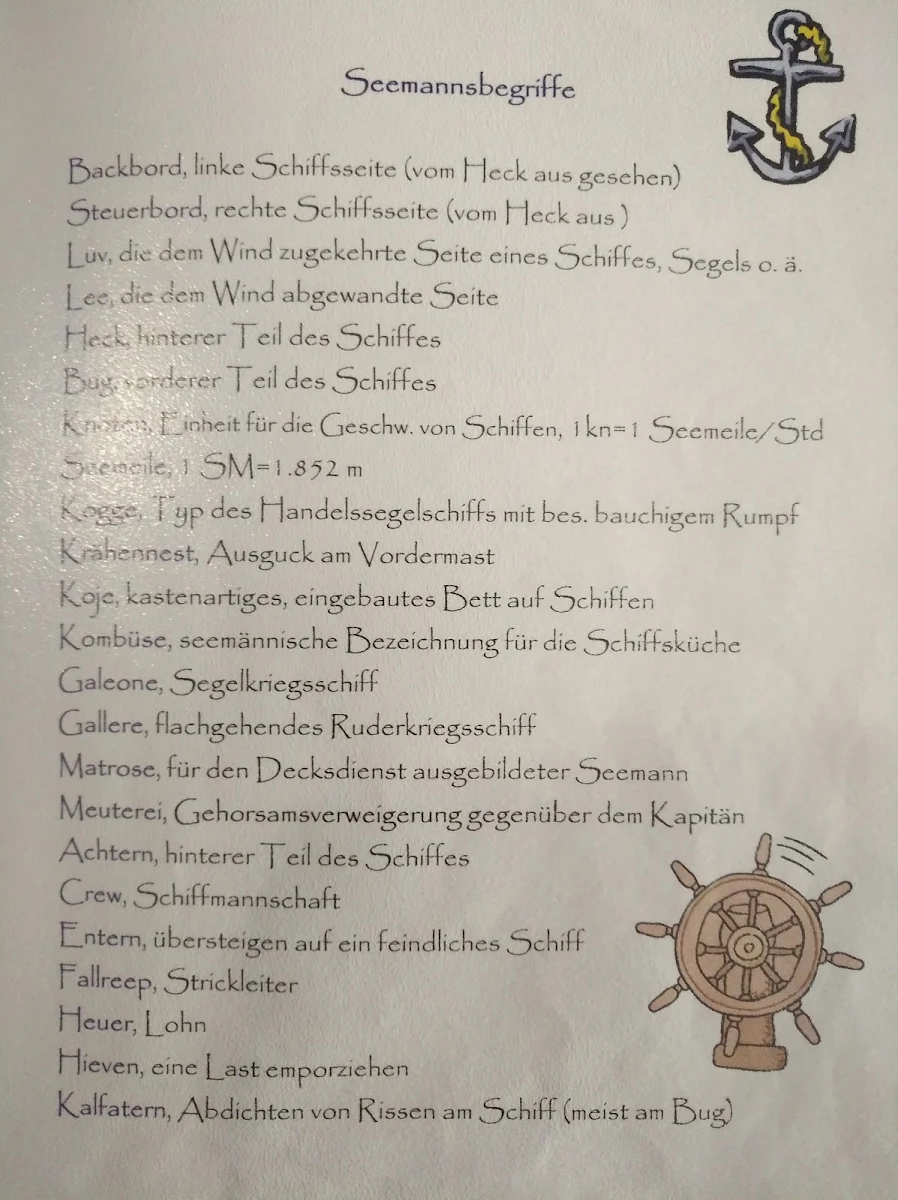 Seemannsbegriffe
Backbord, linke Schiffsseite (vom Heck aus gesehen)
Steuerbord, rechte Schiffsseite (vom Heck aus )
Luv, die dem Wind zugekehrte Seite eines Schiffes, Segels o. ä.
Lee, die dem Wind abgewandte Seite
Heck, hinterer Teil des Schiffes
Bug, vorderer Teil des Schiffes
Knoten, Einheit für die Geschw. von Schiffen, 1 kn=1 Seemeile/Std
Seemeile, 1 SM=1.852 m
Kogge, Typ des Handelssegelschiffs mit bes. bauchigem Rumpf
Krähennest, Ausguck am Vordermast
Koje, kastenartiges, eingebautes Bett auf Schiffen
Kombüse, seemännische Bezeichnung für die Schiffsküche
Galeone, Segelkriegsschiff
Gallere, flachgehendes Ruderkriegsschiff
Matrose, für den Decksdienst ausgebildeter Seemann
Meuterei, Gehorsamsverweigerung gegenüber dem Kapitän
Achtern, hinterer Teil des Schiffes
Crew, Schiffmannschaft
Entern, übersteigen auf ein feindliches Schiff
Fallreep, Strickleiter
Heuer, Lohn
Hieven, eine Last emporziehen
Kalfatern, Abdichten von Rissen am Schiff (meist am Bug)